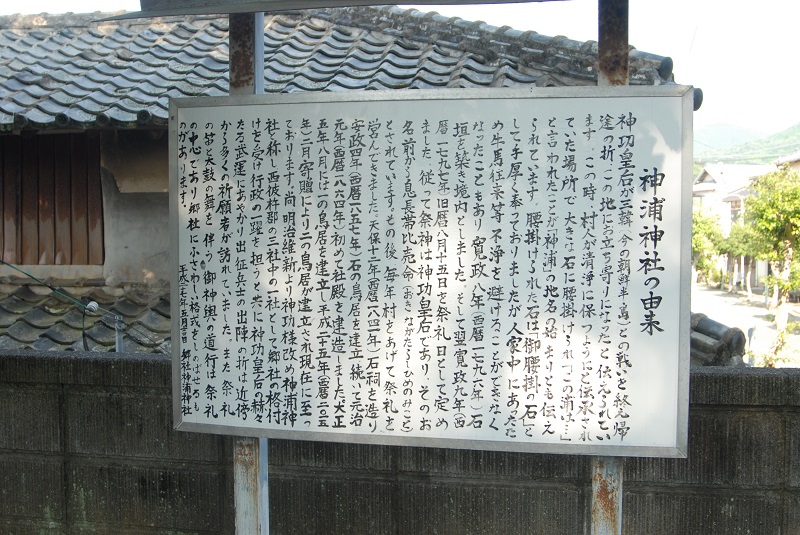 神浦神社の由来
神功皇后が三韓(今の朝鮮半島)との戦いを終え帰
途の折この地にお立ち寄りになったと伝えられてい
ます。この時、村人が清浄に保つようにと伝承され
ていた場所で大きな石に腰掛けられ「この浦は…」
と言われたことが「神浦」の地名の始まりとも伝え
られています。腰掛けられた石は「御腰掛の石」と
して手厚く奉っておりましたが人家中にあったた
め牛馬往来等不浄を避けることができなく
なったこともあり寛政八年(西暦一七九六年)石
垣を築き境内としました。そして翌寛政九年西
暦一七九七年旧暦八月十五日を祭礼日として定め
ました。従って祭神は神功皇后であり、そのお
名前から息長帯比売命(おきながたらしひめのみこと)
とされています。その後、毎年村をあげて祭礼を
営んできました。天保十二年(西暦一八四一年)石祠を造り
安政四年(西暦一八五七年)石の鳥居を建立続いて元治
元年(西暦一八六四年)初めて社殿を建造しました。大正
五年八月には一の鳥居を建立し平成二十五年(西暦二〇一三
年)三月寄贈により二の鳥居が建立され現在に至っ
ております。尚、明治維新より神功様改め神浦神
社と称し西彼杵郡の三社中の一社として郷社の格付
けを受け行政の一躍を担うと共に神功皇后の赫々
たる武運にあやかり出征兵士の出陣の折は近傍
から多くの祈願者が訪れていました。また祭礼
の笛と太鼓の舞を伴う御神輿の道行は祭礼
の中心であり郷社にふさわしい格式をしのばせるも
のがあります。
平成二十五年五月吉日 郷社神浦神社